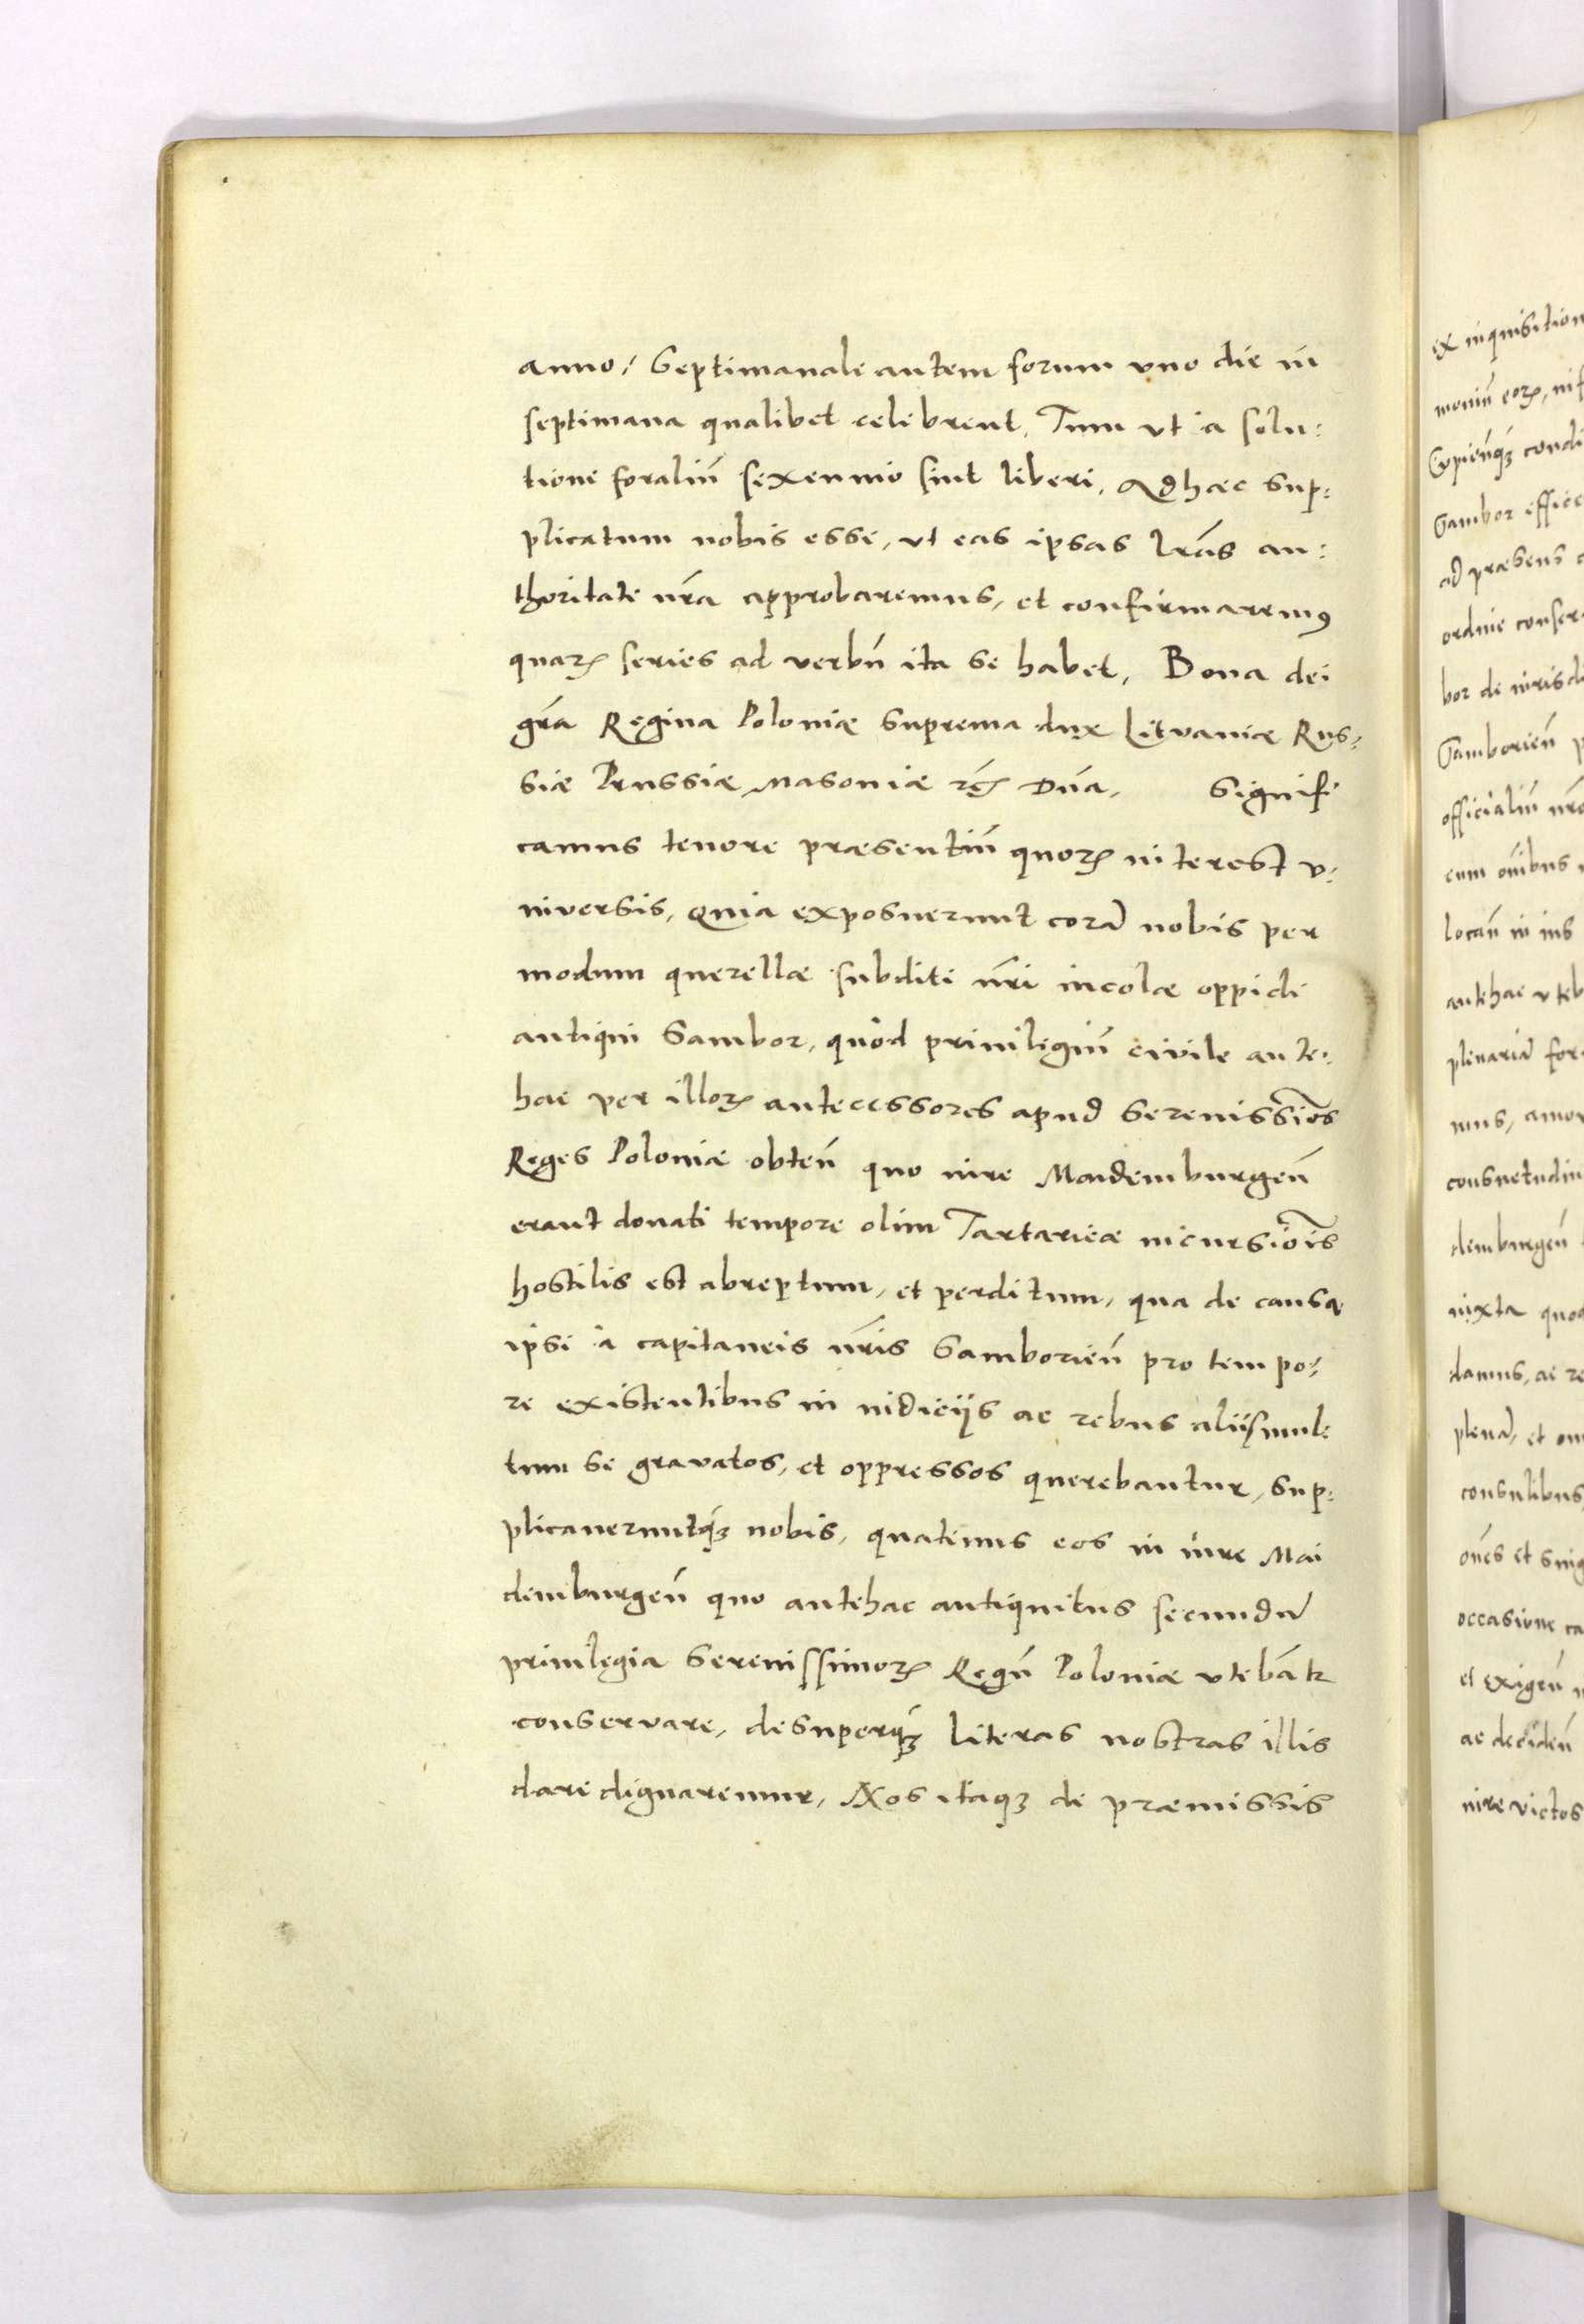 anno, Septimanale autem forum vno die in
septimana qualibet celebrent, Tum vt a solu:
tione foraliũ sexennio sint liberi, Ad hæc sup:
plicatum nobis esse, vt eas ipsas lr̃as au:
thoritate nr̃a approbaremus, et confirmaremꝰ
quaꝝ series ad verbũ ita se habet, Bona dei
gr̃a Regina Poloniæ Suprema dux Lituaniæ Rus:
siæ Prussiæ Masoniæ Dña, Signifi
camus tenore præsentiũ quoꝝ interest v:
niversis, Quia exposuerunt corã nobis per
modum querellæ subditi nr̃i incolæ oppidi
antiqui Sambor, quòd priuilegiũ civile ante:
hac per illoꝝ antecessores apud Serenissĩos
Reges Poloniæ obteñ quo iure Maidemburgeñ
erant donati tempore olim Tartaricæ incursiõis
hostilis est abreptum, et perditum, qua de causa
ipsi à capitaneis nr̃is Samborieñ pro tempo:
re existentibus in iudicijs ac rebus alijs mul:
tum se gravatos, et oppressos querebantur, Sup:
plicaueruntq̃ꝫ nobis, quatinus eos in iure Mai
demburgeñ quo antehac antiquitus secundũ
priuilegia Serenissimoꝝ Regũ Poloniæ vtebãtr
conservare, desuperq̃ꝫ literas nostras illis
dare dignaremur, Nos itaqꝫ de præmissis
ex inquisition
moniũ eoꝝ, nif
Cupieñq̃ꝫ condi
Sambor effice
ad præsens
ordine conser
bor de iurisdi
Samborieñ p
officialiũ nr̃o
cum oĩbus
locañ in ius
antehac vteb
plenariã for
mus, amov
consuetudin
demburgeñ
iuxta quod
damus, ac re
plenã, et om
consulibus
oẽs et sing
occasione ca
et exigeñ
ac decideñ
iure victos